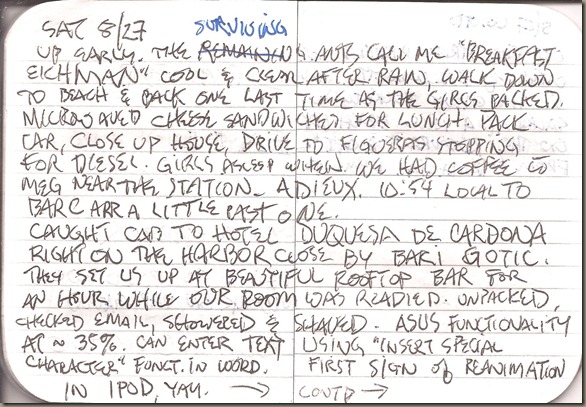 SAT 8/27 SURVIVING
UP EARLY. THE REMAINING ANTS CALL ME "BREAKFAST
EICHMAN" COOL & CLEAR AFTER RAIN, WALK DOWN
TO BEACH & BACK ONE LAST TIME AS THE GIRLS PACKED.
MICROWAVED CHEESE SANDWICHES FOR LUNCH. PACK
CAR, CLOSE UP HOUSE, DRIVE TO FIGUERAS STOPPING
FOR DIESEL. GIRLS ASLEEP WHEN WE HAD COFFEE
MEG NEAR THE STATION. ADIEUX. 10:54 LOCAL TO
BARC ARR A LITTLE PAST ONE.
CAUGHT CAB TO HOTEL DUQUESA DE CARDONA
RIGHT ON THE HARBOR CLOSE BY BARI GOTIC.
THEY SET US UP AT BEAUTIFUL ROOFTOP BAR FOR
AN HOUR WHILE OUR ROOM WAS READIED. UNPACKED,
CHECKED EMAIL, SHOWERED & SHAVED. ASUS FUNCTIONALITY
AT ~ 35%. CAN ENTER TEXT USING "INSERT SPECIAL
CHARACTER" FUNCT. IN WORD. FIRST SIGN OF REANIMATION
IN IPOD, YAY. → CONTD →